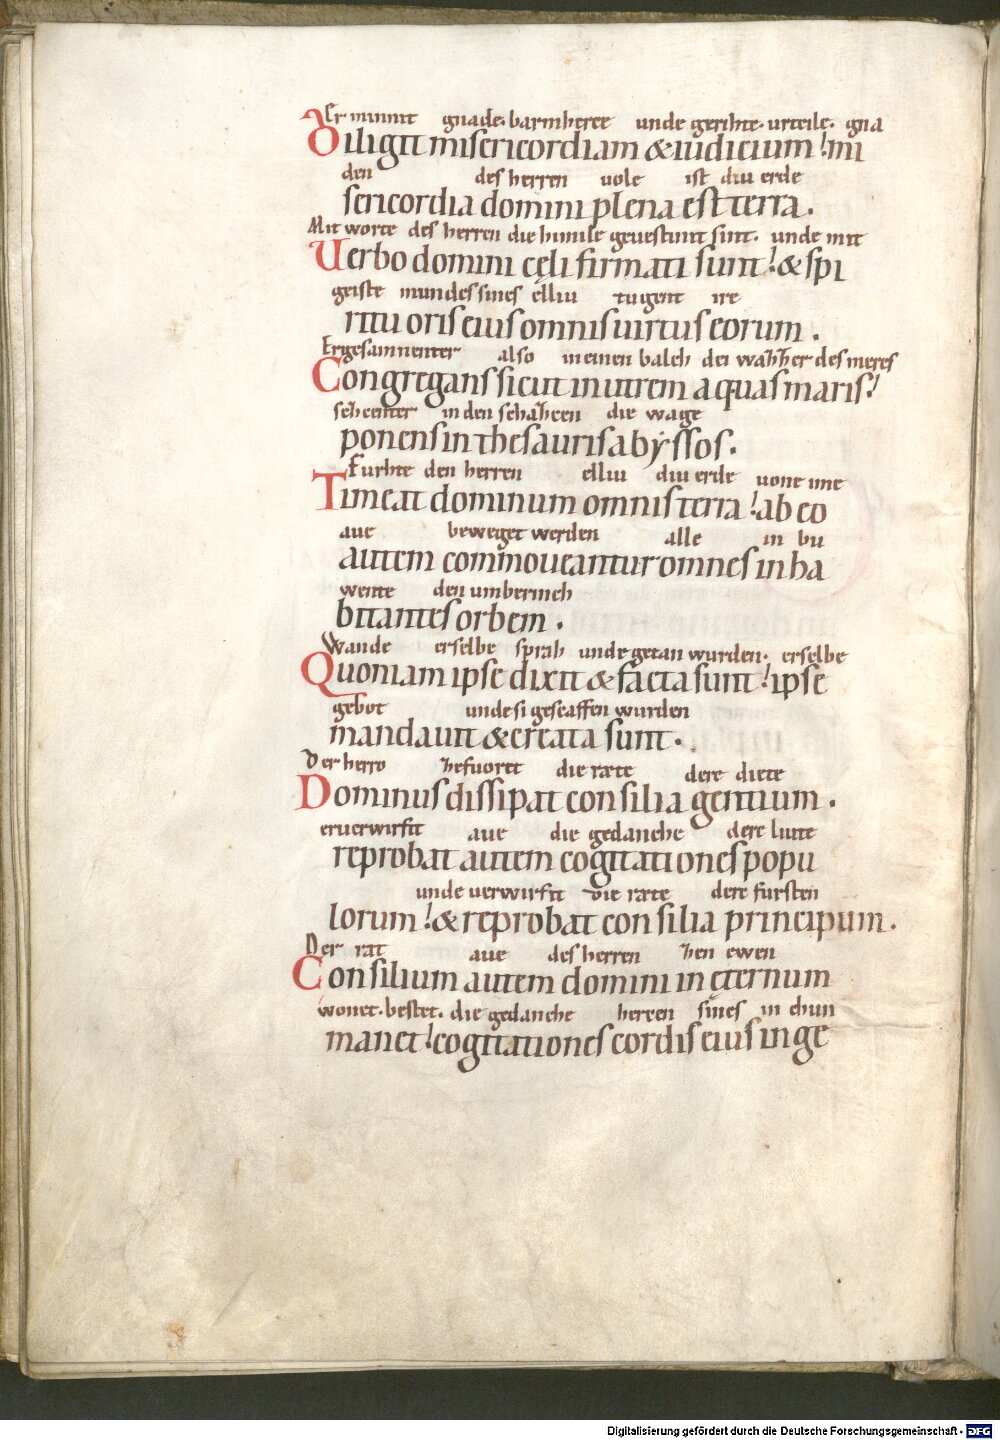 Er minnit gnade. barmherce unde gerihte. urteile. gna
Diligit misericordiam & iudicium! mi
den des herren uole ist diu erde
sericordia domini plena est terra.
Mit worte des herren die himile geuestinit sint. unde mit
Uerbo domini cęli firmati sunt! & spi
geiste mundes sines elliu tugent ire
ritu oris eius omnis uirtus eorum.
Er gesamnenter also in einen balch dei wazzer des meres
Congregans sicut in utrem aquas maris!
scheenter in den schazcen die wage
ponens in thesauris abyssos.
Furhte den herren elliu diu erde uone ime
Timeat dominum omnis terra! ab eo
aue beweget werden alle in bu
autem commoueantur omnes inha
wente den umberinch
bitantes orbem.
Wande erselbe sprah unde getan wurden. erselbe
Quoniam ipse dixit & facta sunt! ipse
gebot unde si gescaffen wurden
mandauit & creata sunt.
Der herro zefuoret die ræte dere diete
Dominus dissipat consilia gentium.
eruerwirfit aue die gedanche dere liute
reprobat autem cogitationes popu
unde uerwirfit die ræte dere fursten
lorum! & reprobat consilia principum.
Der rat aue des herren zen ewen
Consilium autem domini in ęternum
wonet. bestet. die gedanche herzen sines in chun
manet! cogitationes cordis eius in ge
Digitalisierung gefördert durch die Deutsche Forschungsgemeinschaft - DFG